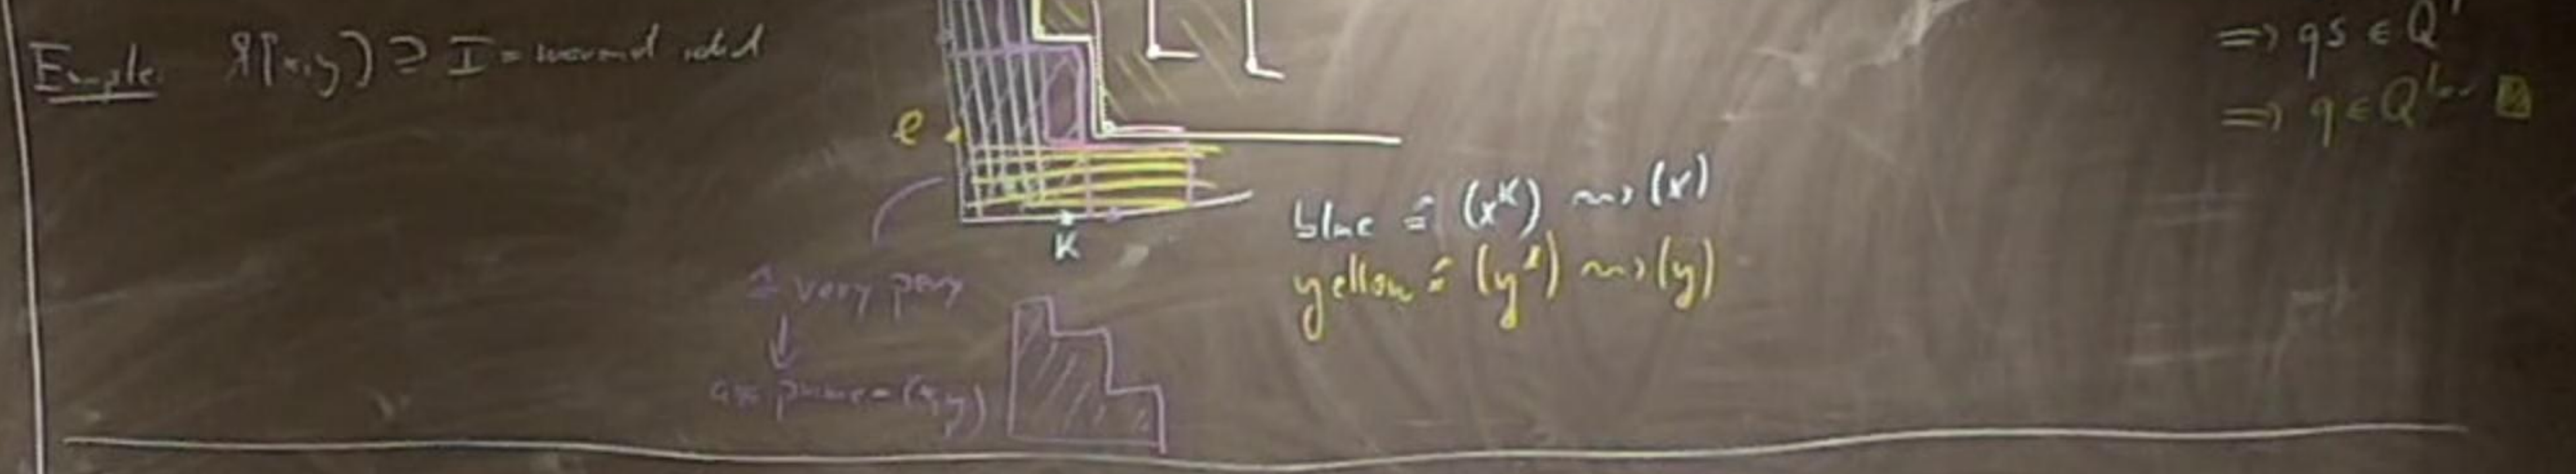 Example: k[x,y] ⊇ I = monomial ideal
⇒ qs ∈ Q
⇒ q ∈ Q
l
K
blue ≙ (x^K) ⇝ (x)
yellow ≙ (y^l) ⇝ (y)
very
ass prime = (x,y)